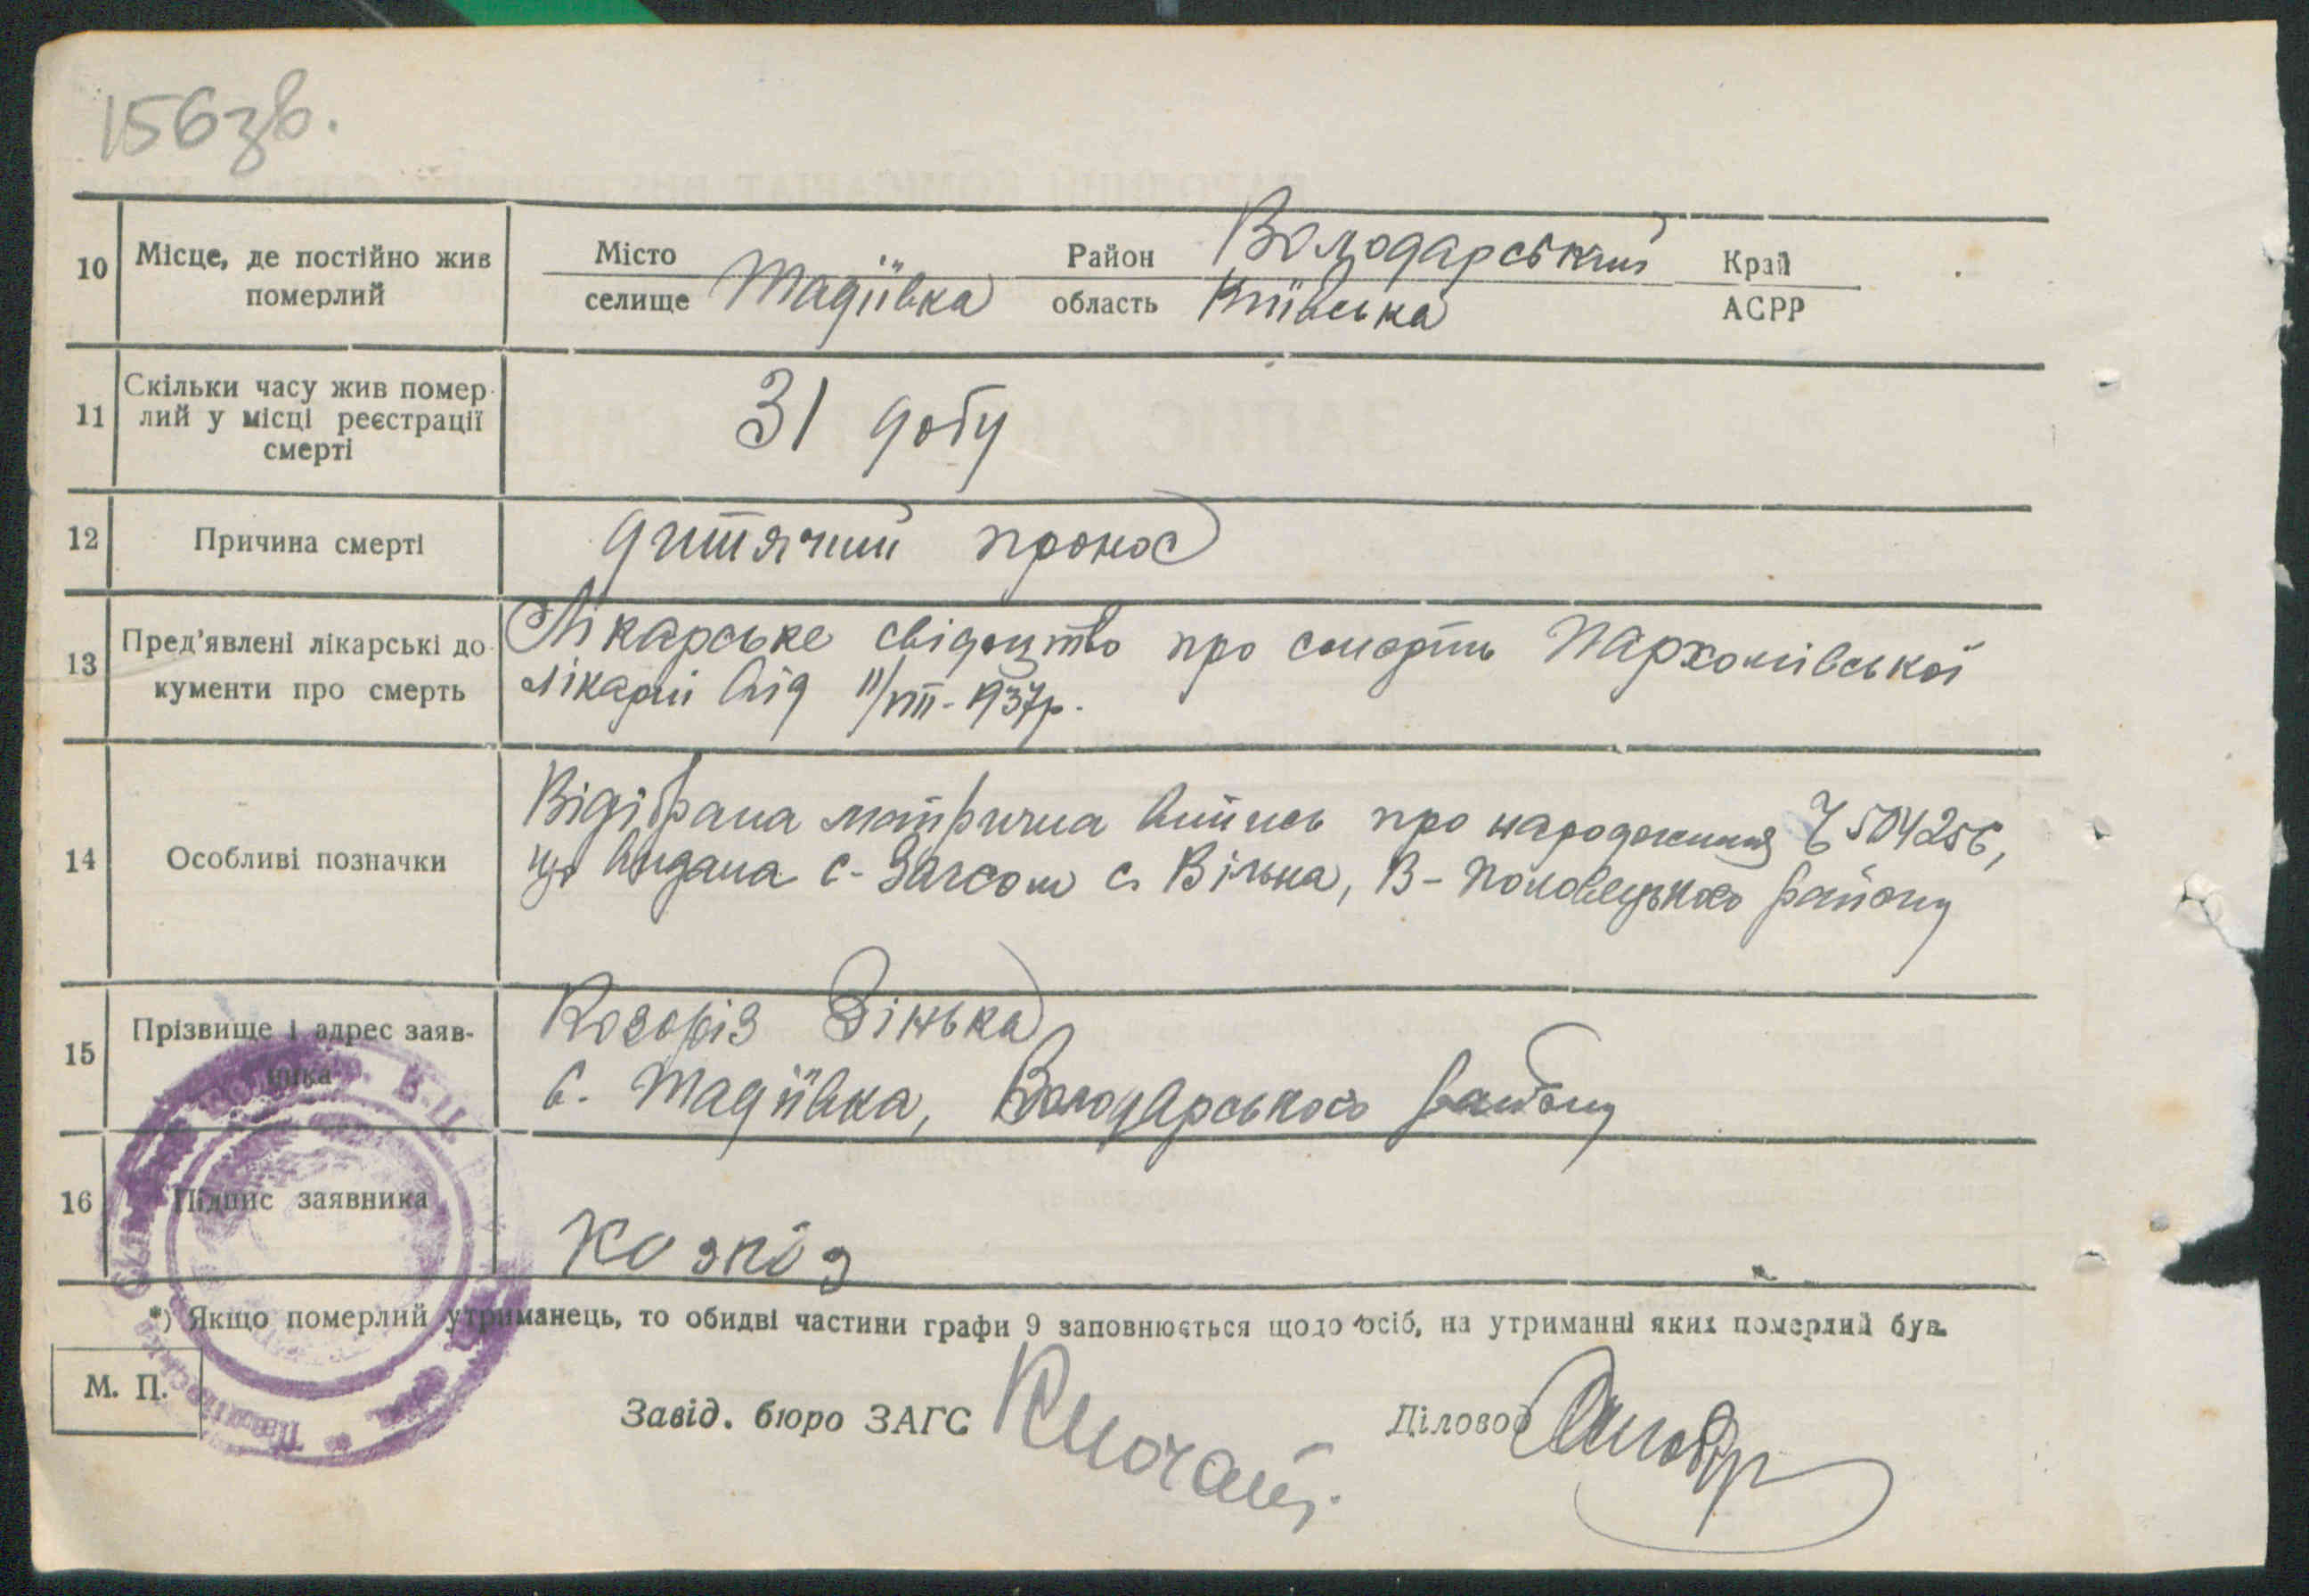 156зв.
10 Місце, де постійно жив померлий
Місто
селище Тадіївка
Район Володарський
область Київська
Край
АСРР
11 Скільки часу жив помер-
лий у місці реєстрації
смерті
31 добу
12 Причина смерті
дитячий пронос
13 Пред'явлені лікарські до-
кументи про смерть
Лікарське свідоцтво про смерть Пархомівської
лікарні від 11/VIII-1937р.
14 Особливі позначки
Відібрана метрична випись про народження 504256,
що видана с-Загсом с. Вільна, В-Половецького району
15 Прізвище і адрес заяв-
ника
Козоріз Зінька
с. Тадіївка, Володарського району
16 Підпис заявника
*) Якщо померлий утриманець, то обидві частини графи 9 заповнюється щодо осіб, на утриманні яких померлий був.
М. П.
Завід. бюро ЗАГС
Діловод